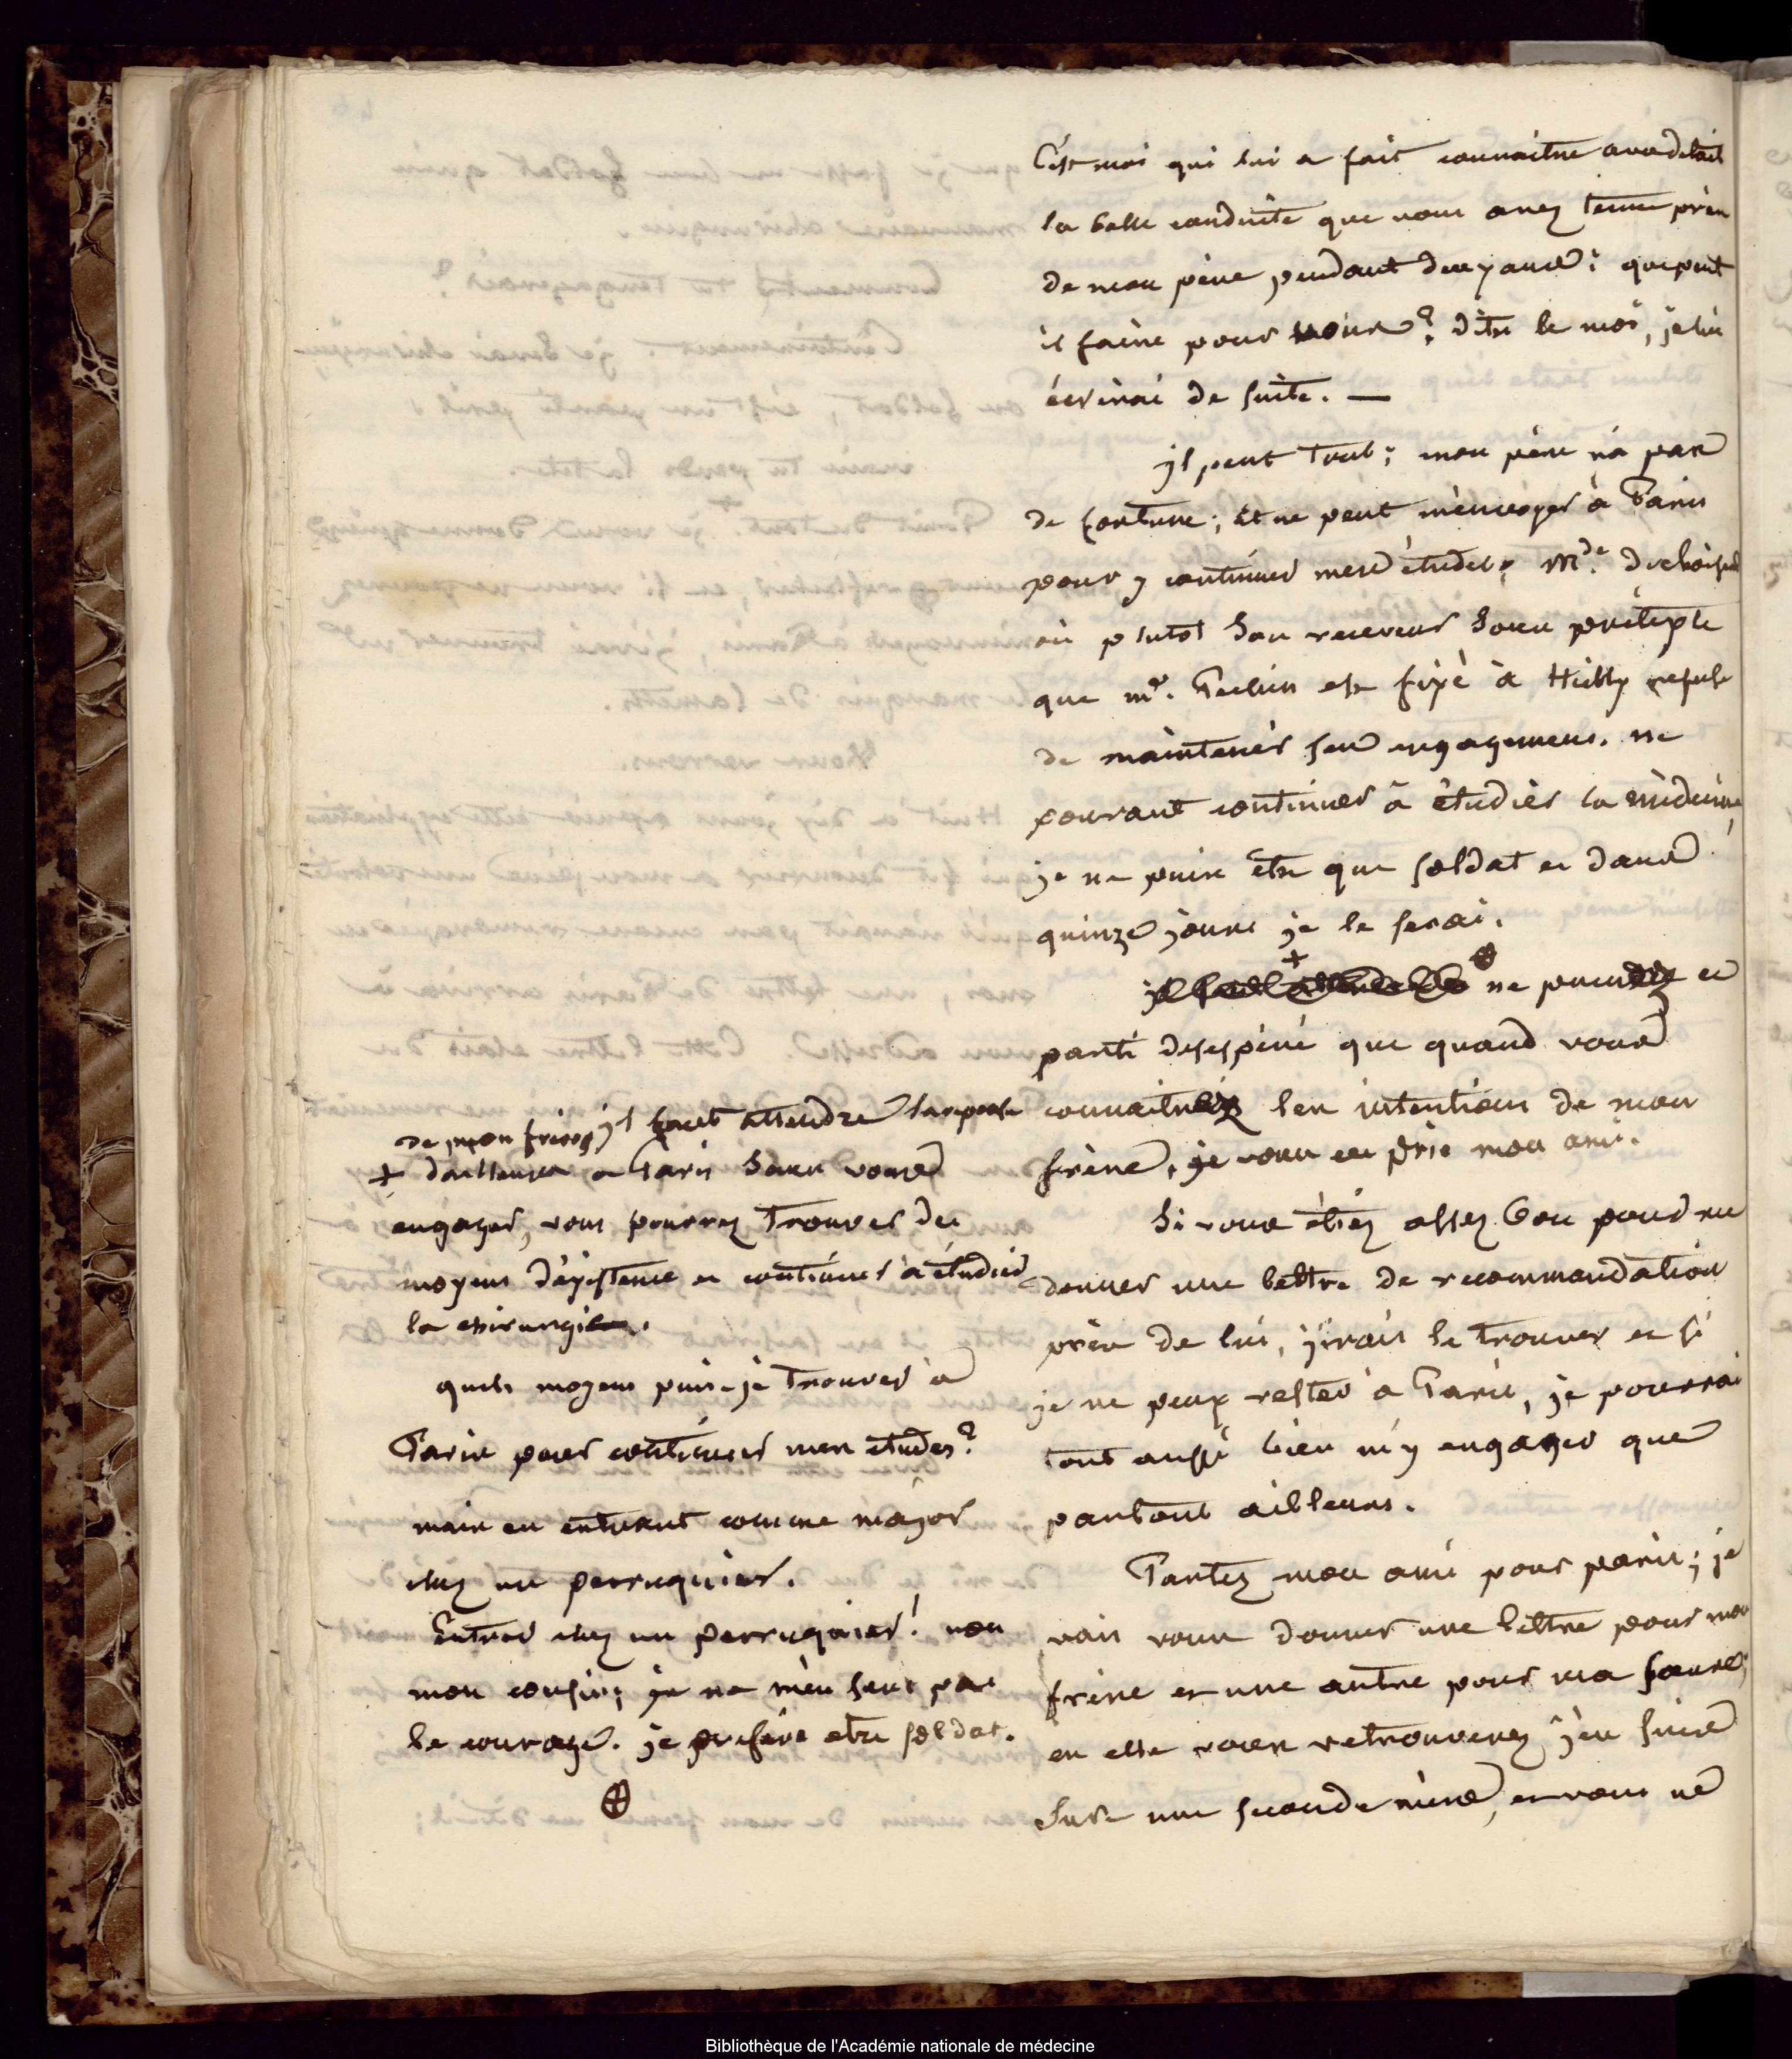 C'est moi qui lui a fait connaitre avec détail
la belle conduite que vous avez tenue près
de mon père pendant deux ans: que peut
il faire pour vous? dites le moi, je lui
écrirai de suite. —
Il peut tout; mon père n'a pas
de fortune; et ne peut m'envoyer à Paris
pour y continuer mes études; Mde. de choiseul
ou plutot son receveur sous prétexte
que mr. est fixé à refuse
de maintenir ses engagemens. ne
pouvant continuer à étudier la médecine,
je ne puis être que soldat et dans
quinze jours je le serai.
il faut attendre + ⊕ ne prenez ce
parti désespéré que quand vous
connaitrez les intentions de mon
frère, je vous en prie mon ami.
Si vous étiez assez bon pour me
donner une lettre de recommandation
près de lui, j'irais le trouver et si
je ne peux rester à Paris, je pourrai
tout aussi bien m'y engager que
partout ailleurs.
Partez mon ami pour paris; je
vais vous donner une lettre pour mon
frère et une autre pour ma sœur;
en elle vous retrouverez j'en suis
sure une seconde mère, et vous ne
il faut attendre la réponse
de mon frère,
+ d'ailleurs a Paris sans vous
engager, vous pourrez trouver des
moyens d'existence et continuer à étudier
la chirurgie.
quels moyens puis-je trouver à
Paris pour continuer mes études?
mais en entrant comme major
chez un perruquier.
Entrer chez un perruquier! non
mon cousin; je ne m'en sens pas
le courage. je préfère etre soldat.
⊕
Bibliothèque de l'Académie nationale de médecine